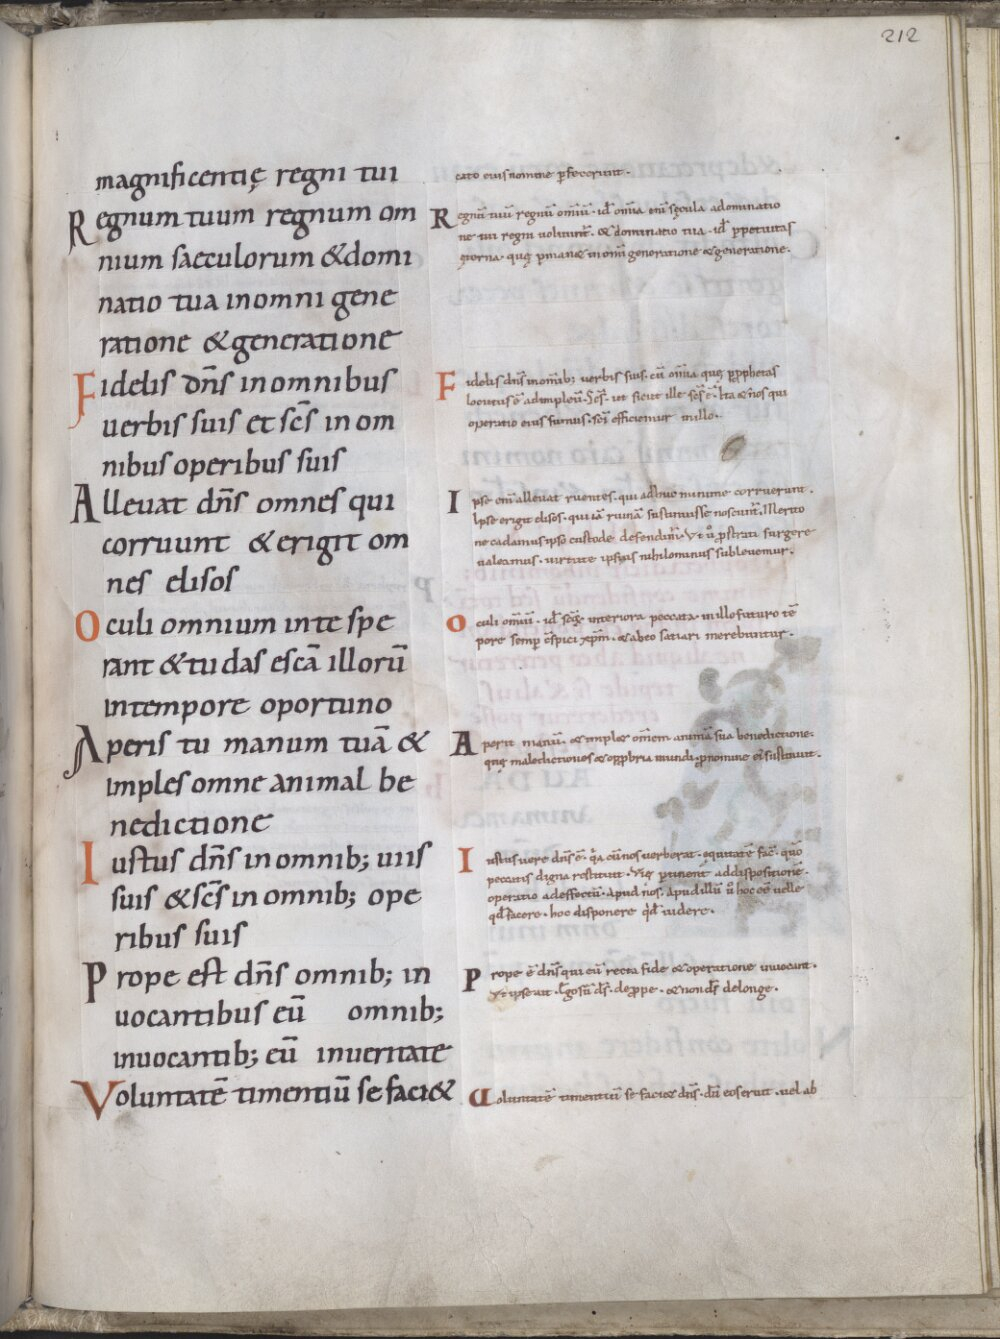 212
magnificentię regni tui
Regnum tuum regnum om
nium saeculorum &domi
natio tua inomni gene
ratione &generatione
Fidelis dn̄s inomnibus
uerbis suis et sc̄s in om
nibus operibus suis
Alleuat dn̄s omnes qui
corruunt &erigit om
nes elisos
Oculi omnium inte spe
rant &tu das escā illorū
intempore oportuno
Aperis tu manum tuā &
imples omne animal be
nedictione
Iustus dn̄s in omnib; uiis
suis &sc̄s in omnib; ope
ribus suis
Prope est dn̄s omnib; in
uocantibus eū omnib;
inuocantib; eū inueritate
Voluntatē timentiū se faci&
cato eius nomine perfecerunt.
Regnū tuū regnū omīū. id omīa sęcula adominatio
ne tui regni uoluunt. & dominatio tua. id perpetuitas
ęterna. quę pmanet inomī generatione & generatione.
Fidelis dn̄s inomīb; uerbis suis. cū omīa quę p̄ prophetas
locutus ē adimpleuit. Sc̄s. ut sicut ille sc̄s ē. Ita & nos qui
operatio eius sumus. sc̄i efficiemur in illo.
Ipse alleuat ruentes. qui adhuc minime corruerunt.
Ipse erigit elisos. qui iā ruinā sustinuisse noscunt. Merito
ne cadamus ipso custode defendimur. Vt prostrati surgere
ualeamus. uirtute ipsius nihilominus subleuemur.
Oculi omīū. id interiora peccata. in illo futuro tē
pore semp̄ c̄spici xp̄m. & abeo satiari merebuntur.
Aperit manū. & implet om̄em animā sua benedictione.
qui maledictiones & opprbria mundi. p̄ nomine ei sustinuit.
Iustus uere dn̄s ē. q̄a cū nos uerberat. equitatē fac̄. quo
peccatis digna restituit. Vię ptinent addispositionē.
operatio adeffectū. apud nos. Apud illū ū hoc eē uelle
qd facere. hoc disponere qd uidere.
Prope ē dn̄s qui eū recta fide & operatione inuocant.
Vt ipse ait. Ego sū ds̄. de prope. & non ds̄ de longe.
Voluntatē timentiū se faciet dn̄s. dū eos eruit. uel ab